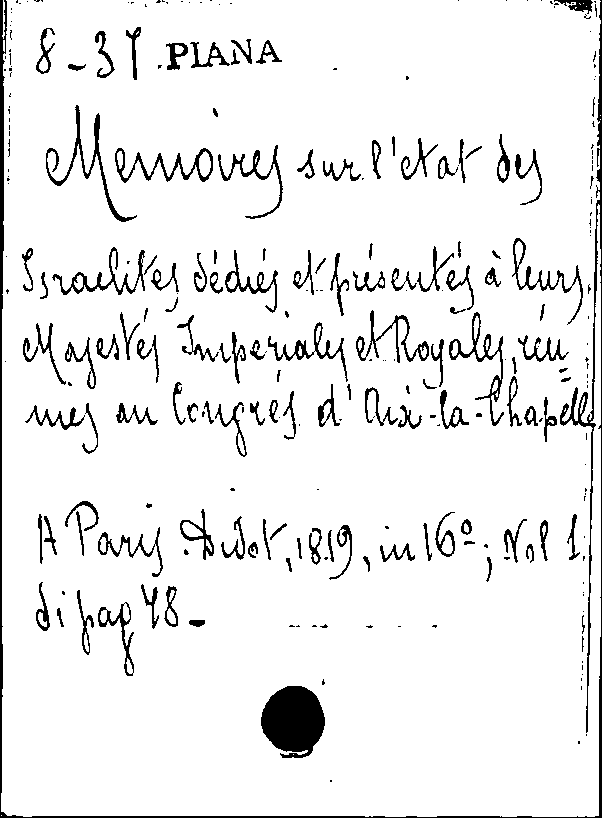 8-37. PIANA
Memoires sur l'etat des
Israelites dédiés et présentés à leurs
Majestés Imperiales et Royales, réu=
nies au Congrés d'Aix-la-Chapelle
A Paris. Didot, 1819, in 16º; Vol 1.
di pag 78-